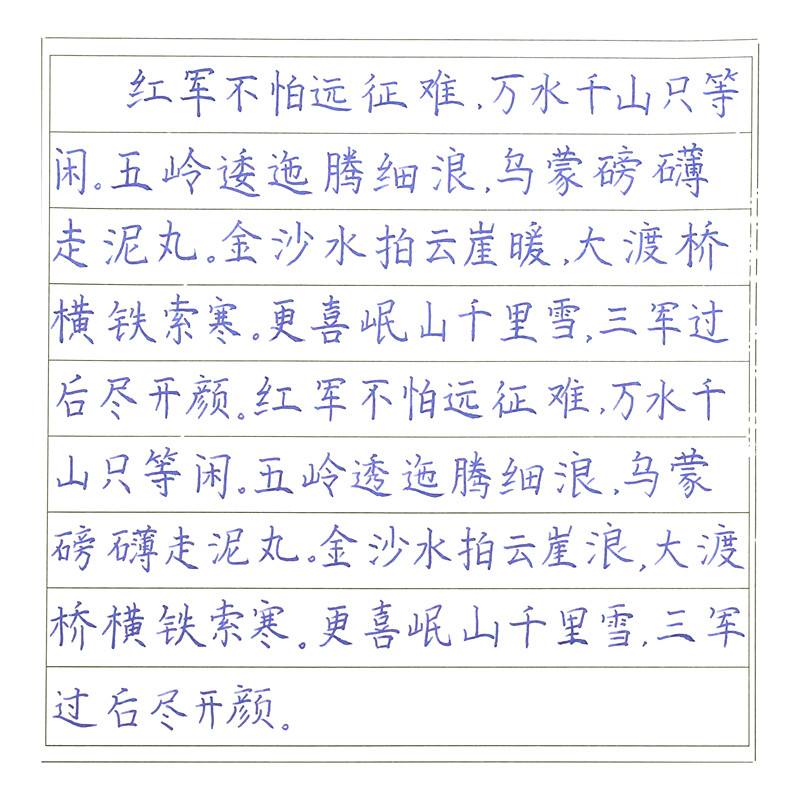 红军不怕远征难,万水千山只等
闲。五岭逶迤腾细浪,乌蒙磅礴
走泥丸。金沙水拍云崖暖,大渡桥
横铁索寒。更喜岷山千里雪,三军过
后尽开颜。红军不怕远征难,万水千
山只等闲。五岭透迤腾细浪,乌蒙
磅礴走泥丸。金沙水拍云崖浪,大渡
桥横铁索寒。更喜岷山千里雪,三军
过后尽开颜。